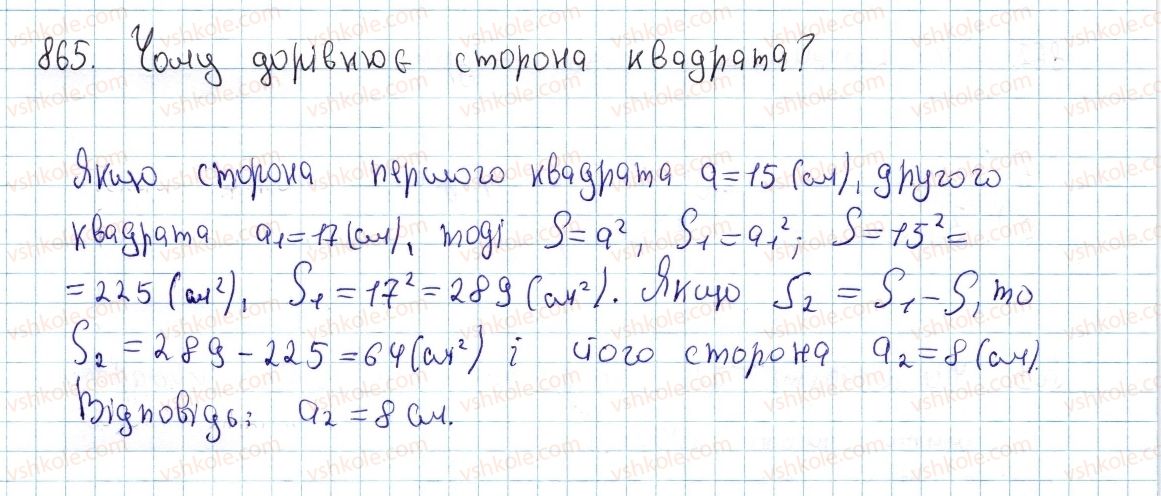 865. Чому дорівнює сторона квадрата?
Якщо сторона першого квадрата a=15 (см), другого
квадрата a₁=17 (см), тоді S=a², S₁=a₁²; S=15²=
=225 (см²), S₁=17²=289 (см²). Якщо S₂=S₁-S, то
S₂=289-225=64 (см²) і його сторона a₂=8 (см).
Відповідь: a₂=8 см.